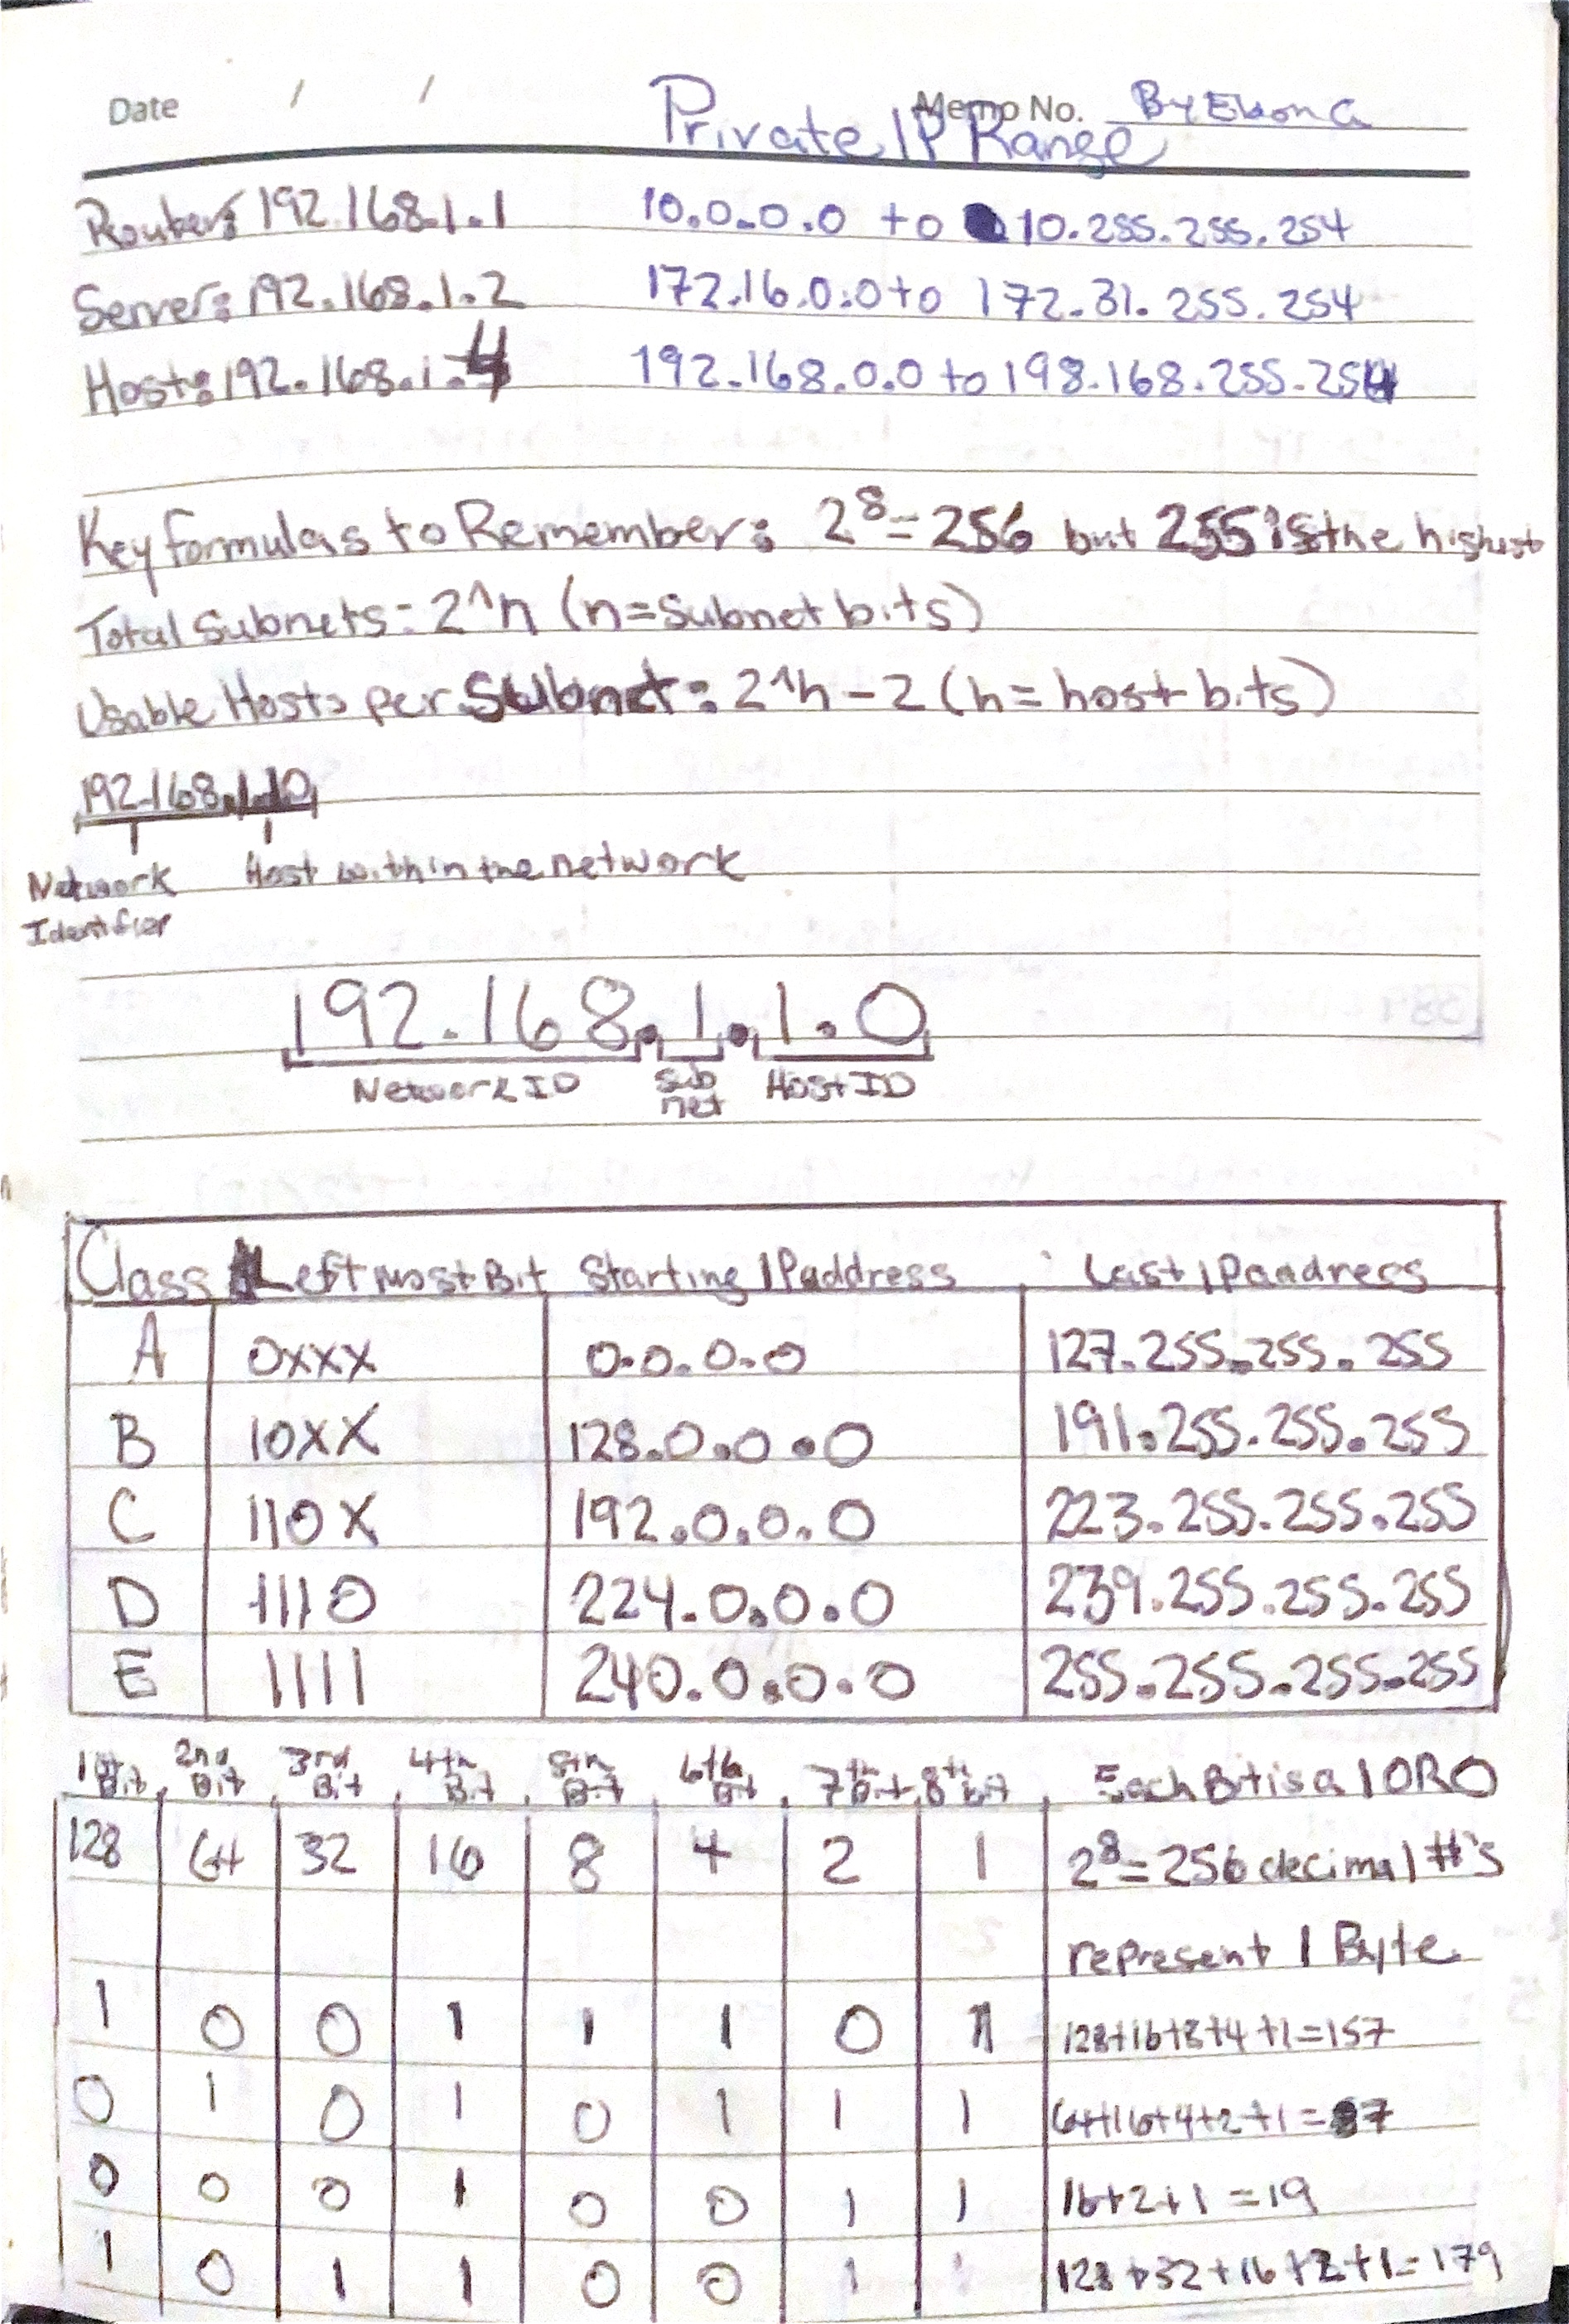 Date / / Memo No. By Ebon G
Private IP Range
Router: 192.168.1.1 10.0.0.0 to 10.255.255.254
Server: 192.168.1.2 172.16.0.0 to 172.31.255.254
Host: 192.168.1.4 192.168.0.0 to 198.168.255.254
Key formulas to Remember: 2⁸=256 but 255 is the highest
Total Subnets: 2^n (n=subnet bits)
Usable Hosts per Subnet: 2^h - 2 (h= host bits)
192.168.1.10
Network Host within the network
Identifier
192.168.1.1.0
Network ID Sub Host ID
net
Class Left most Bit Starting IP address Last IP address
A 0xxx 0.0.0.0 127.255.255.255
B 10xx 128.0.0.0 191.255.255.255
C 110x 192.0.0.0 223.255.255.255
D 1110 224.0.0.0 239.255.255.255
E 1111 240.0.0.0 255.255.255.255
1st Bit 2nd Bit 3rd Bit 4th Bit 5th Bit 6th Bit 7th Bit 8th bit Each Bit is a 1 OR 0
128 64 32 16 8 4 2 1 2⁸=256 decimal #'s
represent 1 Byte
1 0 0 1 1 1 0 1 128+16+8+4+1=157
0 1 0 1 0 1 1 1 64+16+4+2+1=87
0 0 0 1 0 0 1 1 16+2+1=19
1 0 1 1 0 0 1 1 128+32+16+2+1=179